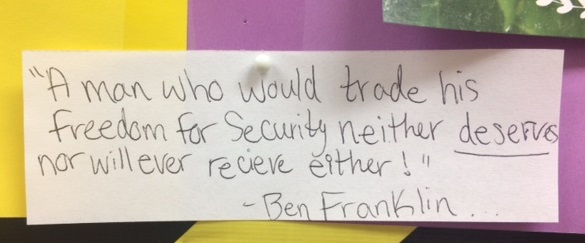 "A man who would trade his
freedom for Security neither deserves
nor will ever recieve either!"
- Ben Franklin...